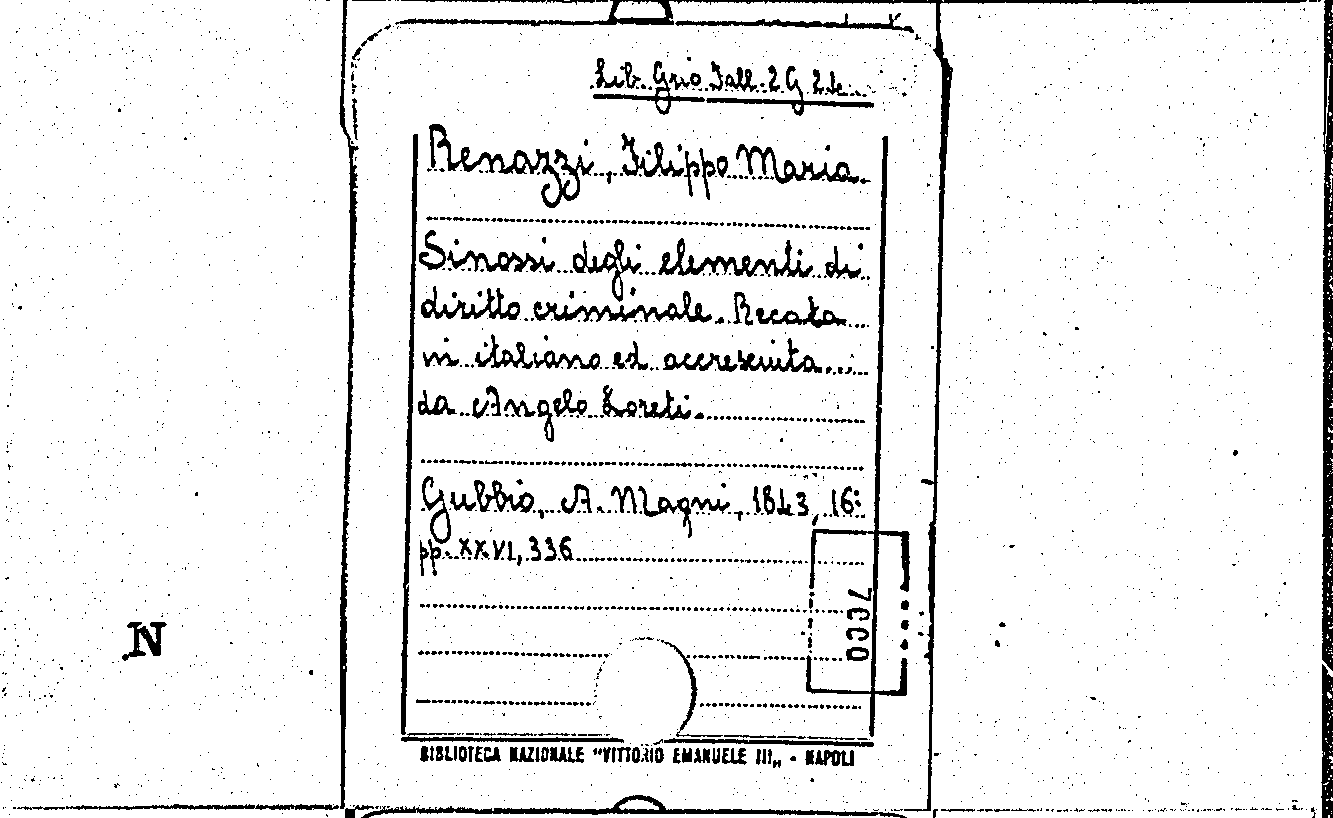 Lib. Grio Fall. 2 G 24
Renazzi, Filippo Maria.
Sinossi degli elementi di
diritto criminale. Recata
in italiano ed accresciuta...
da Angelo Loreti.
Gubbio, A. Magni, 1843, 16:
pp. XXVI, 336
7000
N
BIBLIOTECA NAZIONALE "VITTORIO EMANUELE III„ - NAPOLI